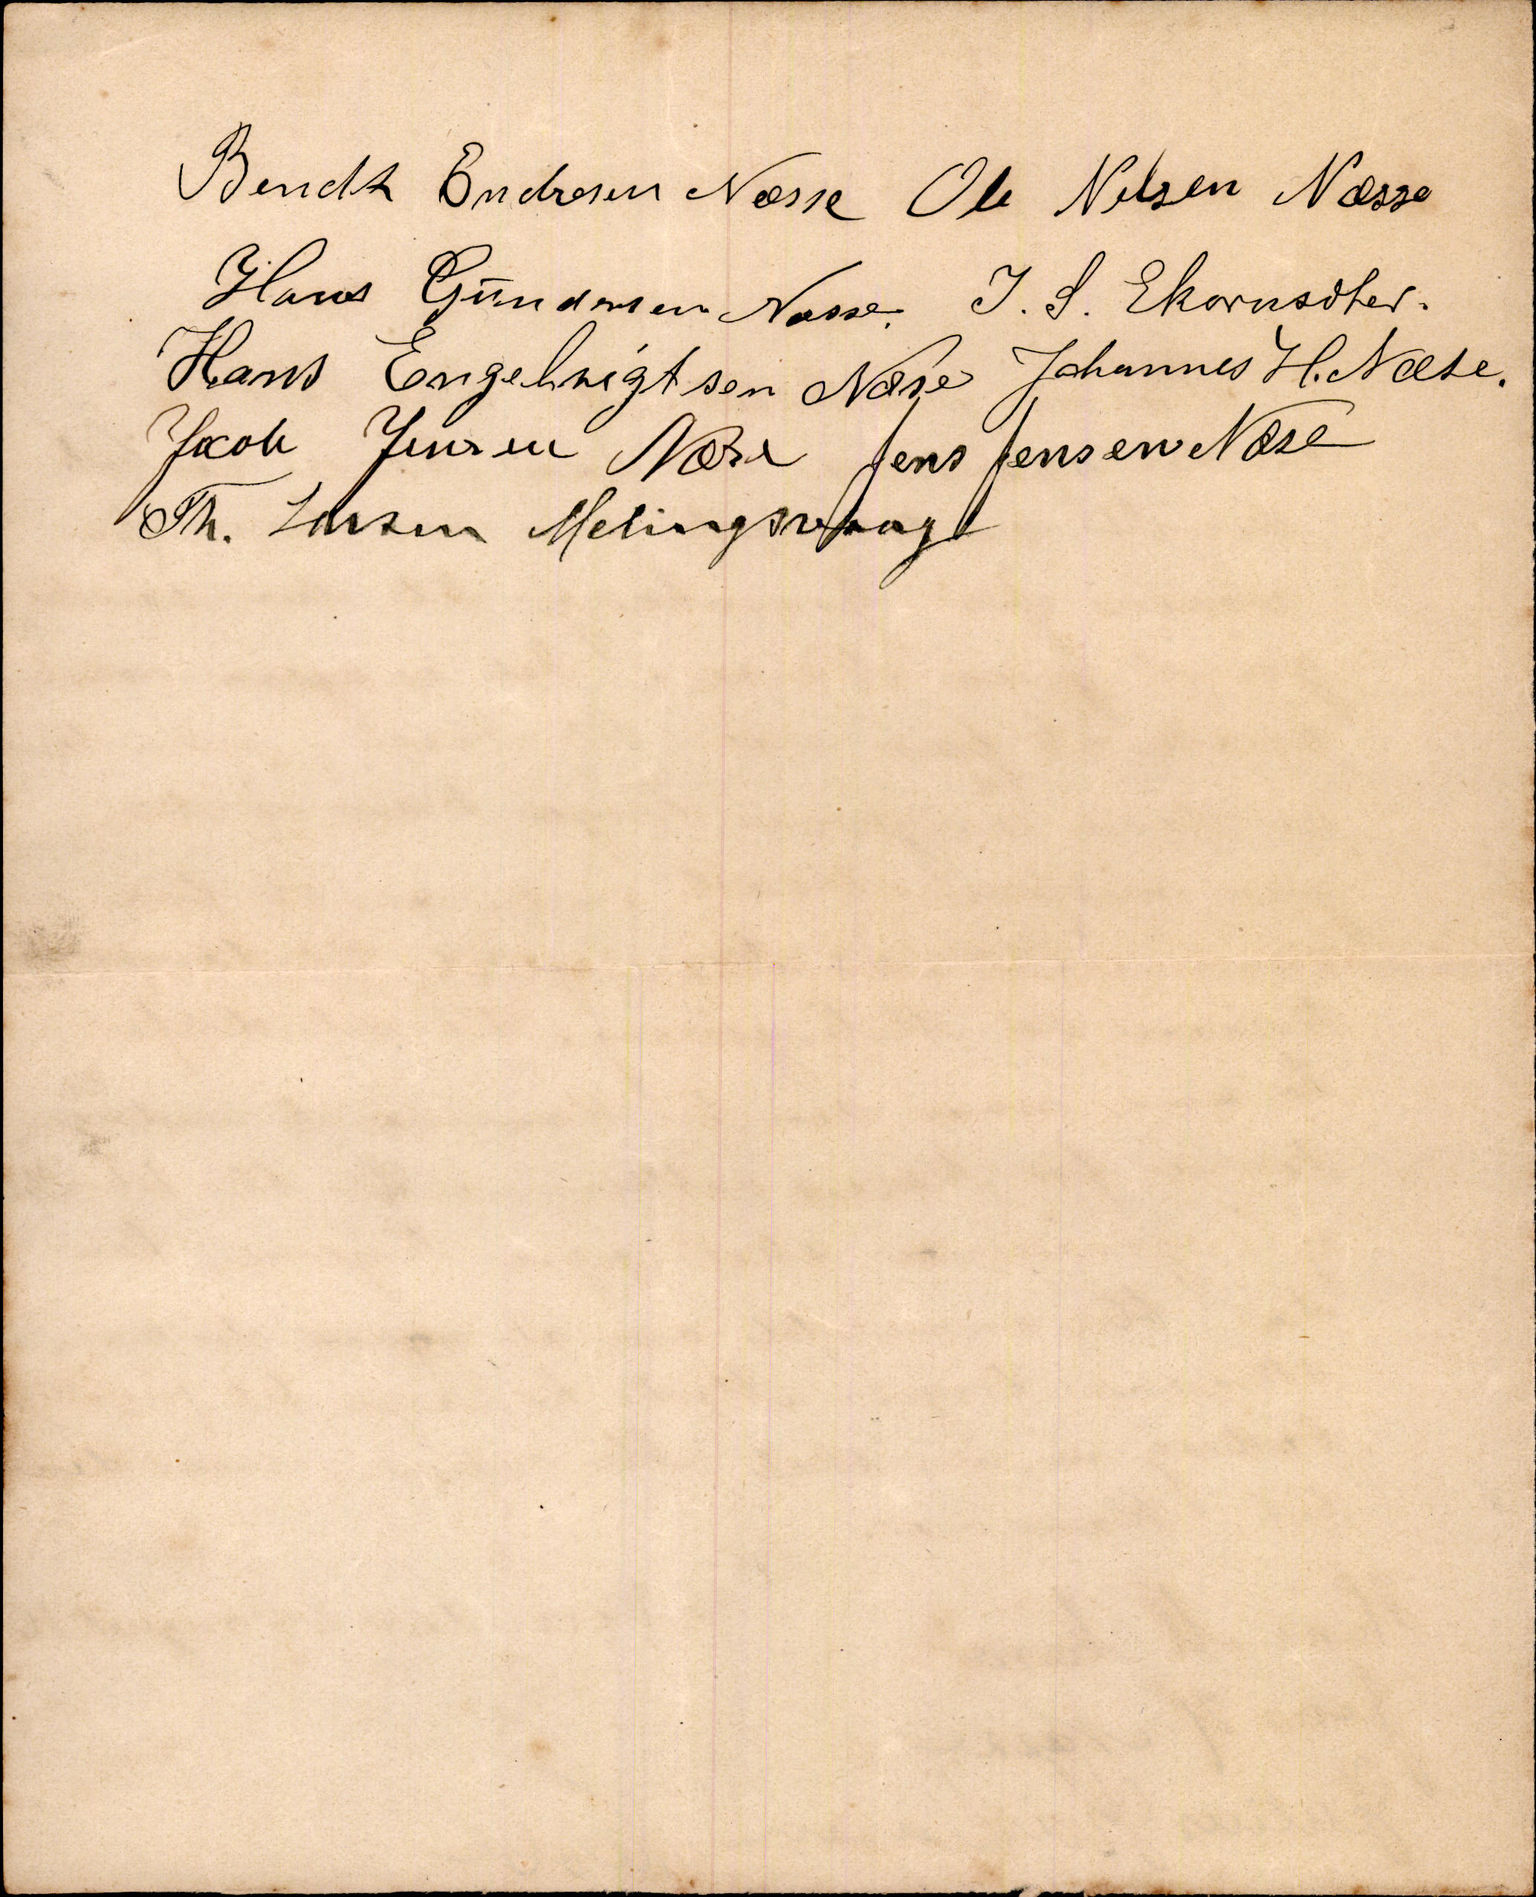 Bendt Endresen Næsse Ole Nelsen Næsse
Hans Gundersen Næsse. J. S. Ekornsæter.
Hans Engebrigtsen Næse Johannes H. Næse.
Jacob Jensen Næse Jens Jensen Næse
Th. Larsen Melingsvaag